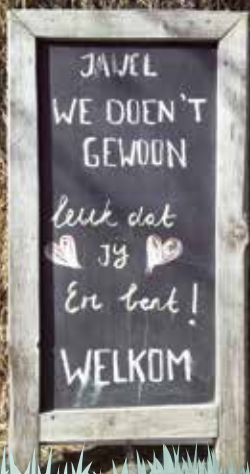 JAWEL
WE DOEN'T
GEWOON
leuk dat
JY
Er bent!
WELKOM